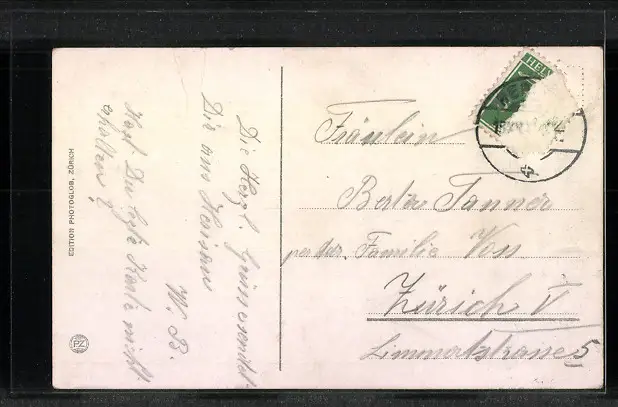 Die Herzl. Grüsse sendet
Dir aus
W. B.
Hast Du letzte Karte nicht
erhalten?
EDITION PHOTOGLOB, ZÜRICH
PZ
HELV
Fräulein
Berta Tanner
per Adr. Familie
Zürich V
Limmatstrasse 5